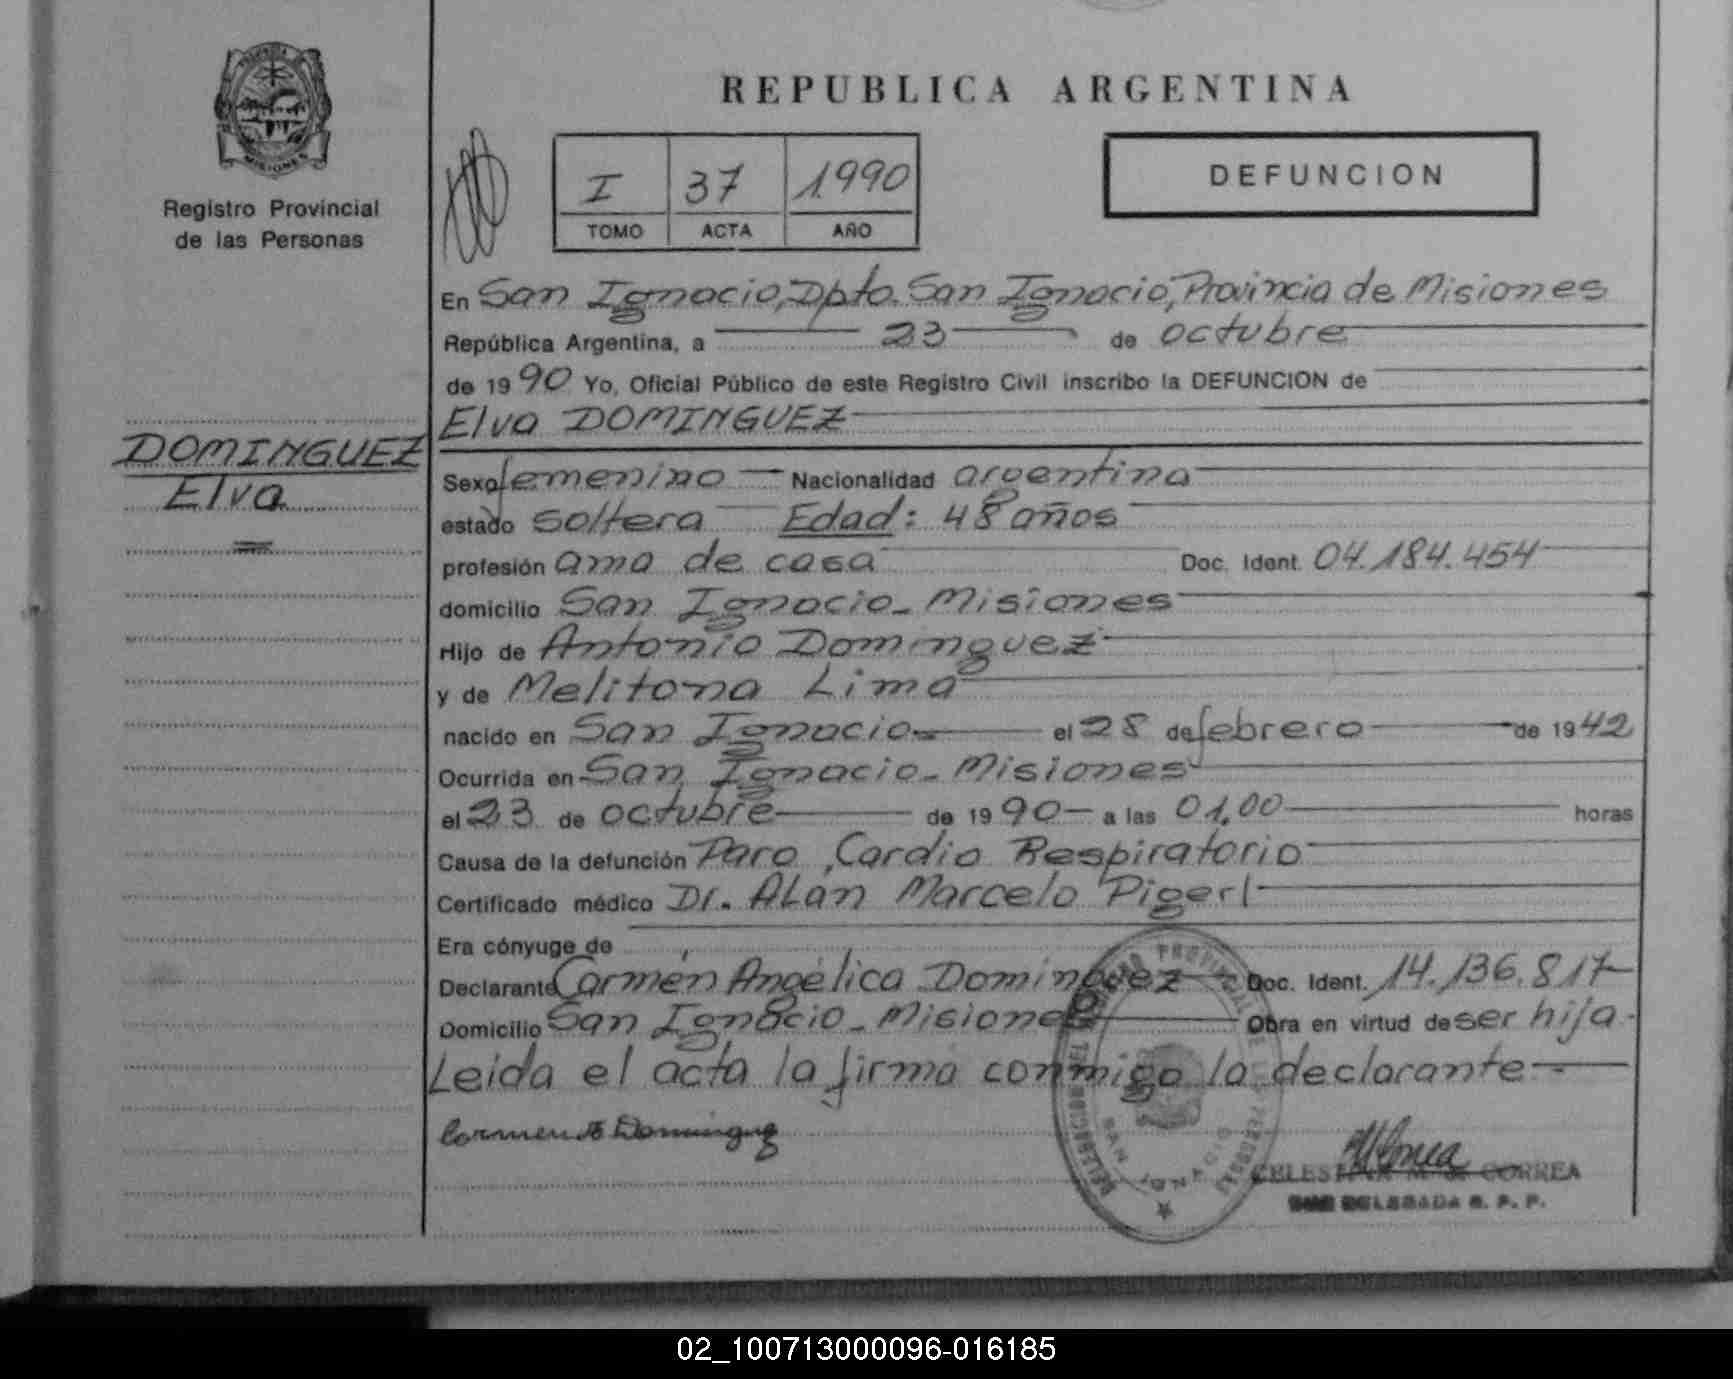 PROVINCIA DE
MISIONES
Registro Provincial
de las Personas
DOMINGUEZ
Elva
REPUBLICA ARGENTINA
I 37 1990
TOMO ACTA AÑO
DEFUNCION
En San Ignacio, Dpto. San Ignacio, Provincia de Misiones
República Argentina, a 23 de octubre
de 1990 Yo, Oficial Público de este Registro Civil inscribo la DEFUNCION de
Elva DOMINGUEZ
Sexo femenino Nacionalidad argentina
estado soltera Edad: 48 años
profesión ama de casa Doc. Ident. 04.184.454
domicilio San Ignacio - Misiones
Hijo de Antonio Dominguez
y de Melitona Lima
nacido en San Ignacio el 28 de febrero de 1942
Ocurrida en San Ignacio - Misiones
el 23 de octubre de 1990 a las 01,00 horas
Causa de la defunción Paro Cardio Respiratorio
Certificado médico Dr. ALan Marcelo Pigerl
Era cónyuge de
Declarante Carmen Angélica Dominguez Doc. Ident. 14.136.817
Domicilio San Ignacio - Misiones Obra en virtud de ser hija
Leida el acta la firma conmigo la declarante
Carmen A Dominguez
SAN IGNACIO
CELESTINA M. de CORREA
SUB DELEGADA R. P. P.
02_100713000096-016185